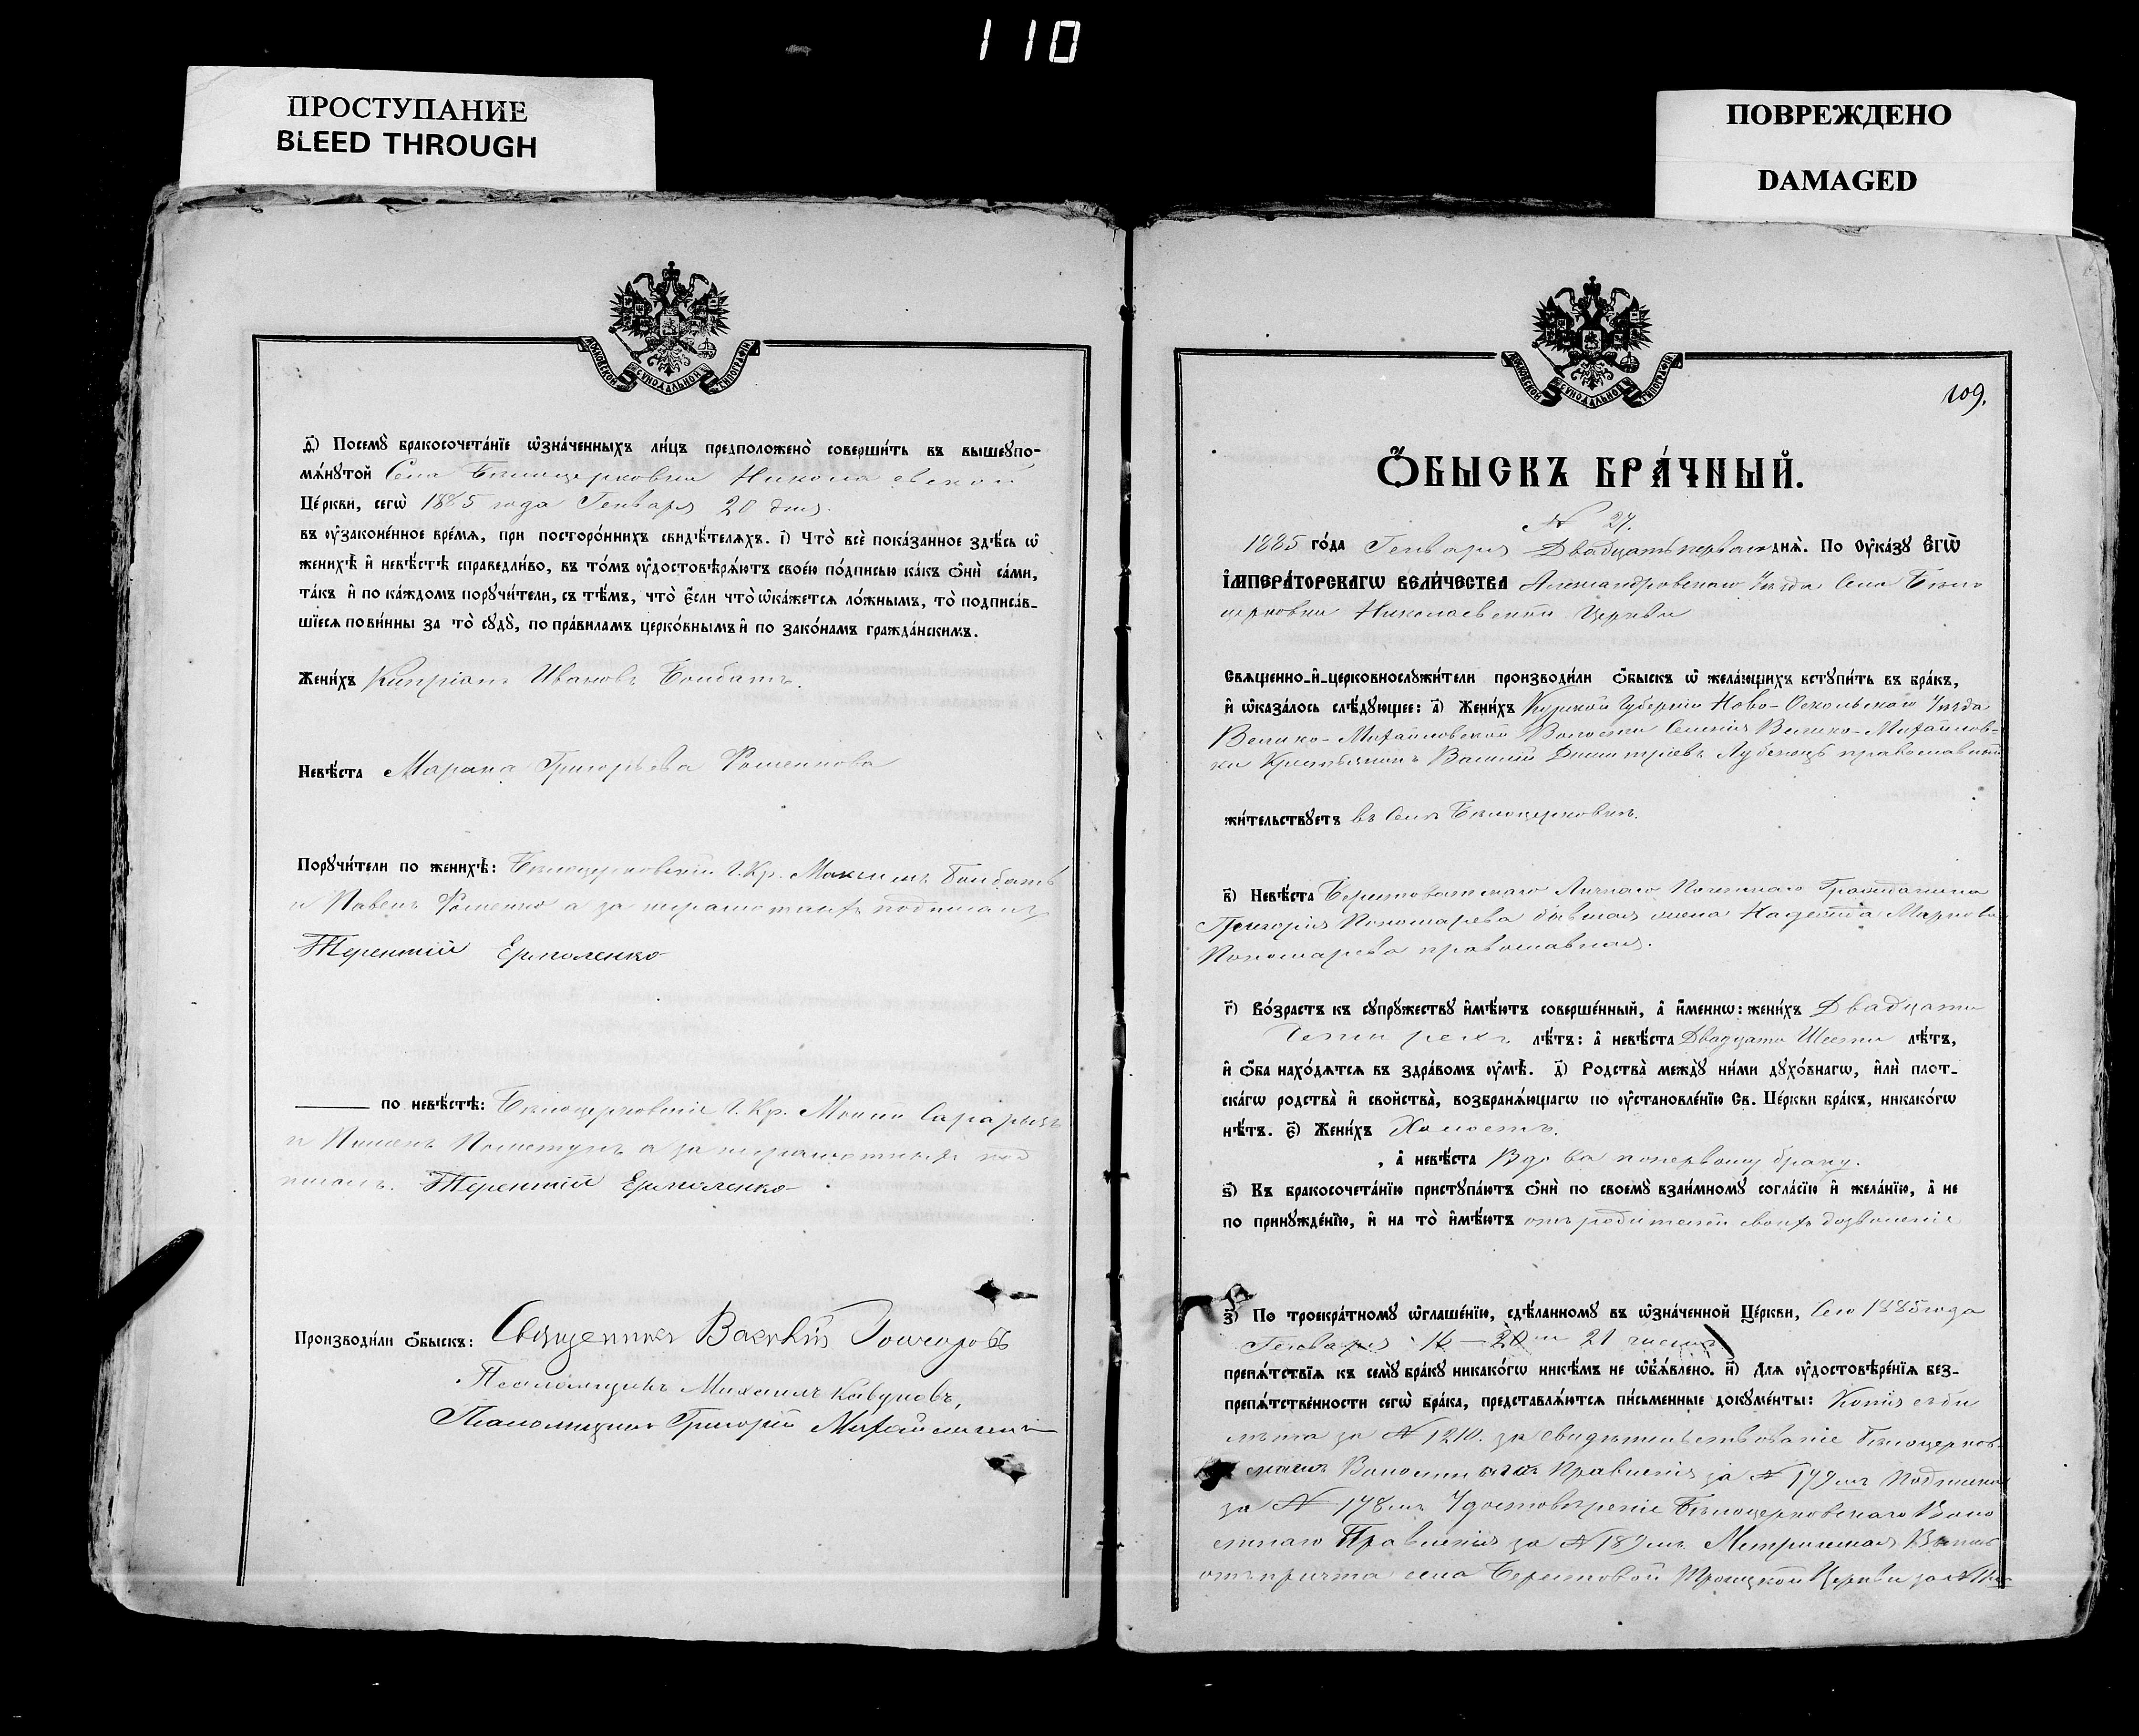 110
ПРОСТУПАНИЕ
BLEED THROUGH
ПОВРЕЖДЕНО
DAMAGED
МОСКОВСКОЙ СѴНОДАЛЬНОЙ ТИПОГРАФІИ
д҃) Посемꙋ̀ бракосочета́нїе ѡ҆зна́ченныхъ ли́цъ предположено̀ соверши́ть въ вышеꙋпо-
мѧ́нꙋтой Села Бѣлоцерковки Николаевской
Це́ркви, сегѡ̀ 1885 года Генваря 20 дня.
въ ᲂу҆зако́ненное вре́мѧ, при посторо́ннихъ свидѣ́телѧхъ. і҃) Что̀ всѐ пока́занное здѣ́сь ѡ҆
женихѣ̀ и҆ невѣ́стѣ справедли́во, въ то́мъ ᲂу҆достовѣрѧ́ютъ свое́ю по́дписью ка́къ ѻ҆нѝ са́ми,
та́къ и҆ по ка́ждомъ порꙋчи́тели, съ тѣ́мъ, что̀ є҆́сли что̀ ѡ҆ка́жетсѧ ло́жнымъ, то̀ подписа́в-
шїесѧ пови́нны за то̀ сꙋдꙋ̀, по пра́виламъ церко́внымъ и҆ по зако́намъ гражда́нскимъ.
Жени́хъ Кипріанъ Ивановъ Бонбатъ.
Невѣ́ста Марина Григорьева Фоменкова
Порꙋчи́тели по женихѣ̀: Бѣлоцерковскіи Г. Кр. Максимъ Бонбатъ
и Павелъ Фоменко а за неграмотныхъ подписалъ
Терентій Ермоленко
по невѣ́стѣ: Бѣлоцерковскіе Г. Кр.
и а за неграмотныхъ под
писалъ. Терентій Ермоленко
Производи́ли ѻ҆́быскъ: Священникъ
Псаломщикъ Михаилъ Кавуновъ,
Псаломщикъ Григорій
МОСКОВСКОЙ СѴНОДАЛЬНОЙ ТИПОГРАФІИ
109.
Ѻ҆́БЫСКЪ БРА́ЧНЫЙ.
N 27.
1885 го́да Генваря Двадцать перваго днѧ̀. По ᲂу҆ка́зꙋ Є҆ГѠ̀
І҆МПЕРА́ТОРСКАГѠ ВЕЛИ́ЧЕСТВА Александровскаго Уѣзда Села Бѣло
церковки Николаевской Церкви
Свѧщенно-и҆-церковнослꙋжи́тели производи́ли ѻ҆́быскъ ѡ҆ жела́ющихъ встꙋпи́ть въ бра́къ,
и҆ ѡ҆каза́лось слѣ́дꙋющее: а҃) Жени́хъ Курской Губерніи Ново-Оскольскаго Уѣзда
Велико-Михайловской Волости Селенія Велико-Михайлов-
ки Крестьянинъ Василій Димитріевъ Лубенецъ православный
жи́тельствꙋетъ въ Селѣ Бѣлоцерковкѣ.
в҃) Невѣ́ста Берестоватскаго Личнаго Почетнаго Гражданина
Григорія Пономарева бывшая жена Надежда Маркова
Пономарева православная.
г҃) Во́зрастъ къ сꙋпрꙋ́жествꙋ и҆мѣ́ютъ соверше́нный, а҆ и҆́меннѡ: жени́хъ Двадцати
Четырехъ лѣ́тъ: а҆ невѣ́ста Двадцати Шести лѣ́тъ,
и҆ ѻ҆́ба нахо́дѧтсѧ въ здра́вомъ ᲂу҆мѣ̀. д҃) Родства̀ междꙋ̀ ни́ми дꙋхо́внагѡ, и҆лѝ плот-
ска́гѡ родства̀ и҆ сво́йства̀, возбранѧ́ющагѡ по ᲂу҆становле́нїю Св. Це́ркви бра́къ, никако́гѡ
нѣ́тъ. є҃) Жени́хъ Холостъ.
, а҆ невѣ́ста Вдова по первому браку.
ѕ҃) Къ бракосочета́нїю пристꙋпа́ютъ ѻ҆нѝ по своемꙋ̀ взаи́мномꙋ согла́сїю и҆ жела́нїю, а҆ не
по принꙋжде́нїю, и҆ на то̀ и҆мѣ́ютъ отъ родителей своихъ дозволеніе
з҃) По троекра́тномꙋ ѡ҆глаше́нїю, сдѣ́ланномꙋ въ ѡ҆зна́ченной Це́ркви, Сего 1885 года
Генваря 16 — 20 и 21 числа
препѧ́тствїѧ къ семꙋ̀ бра́кꙋ никако́гѡ никѣ́мъ не ѡ҆б̾ѧ́влено. и҃) Длѧ ᲂу҆достовѣре́нїѧ без-
препѧ́тственности сегѡ̀ бра́ка, представлѧ́ютсѧ пи́сьменные докꙋме́нты: Копія съ би
лѣта за N 1210. за свидѣтельствованіе Бѣлоцерков-
скимъ Волостнымъ Правленія за N 179мъ
за N 178мъ Удостовѣреніе Бѣлоцерковскаго Воло
стнаго Правленія за N 189мъ Метрическая
отъ причта села Берестовой Троицкой Церкви за N